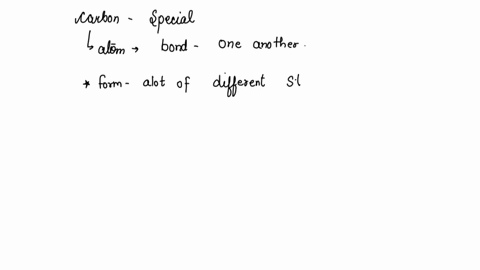 Carbon - Special
atom → bond - one another.
* form - alot of different